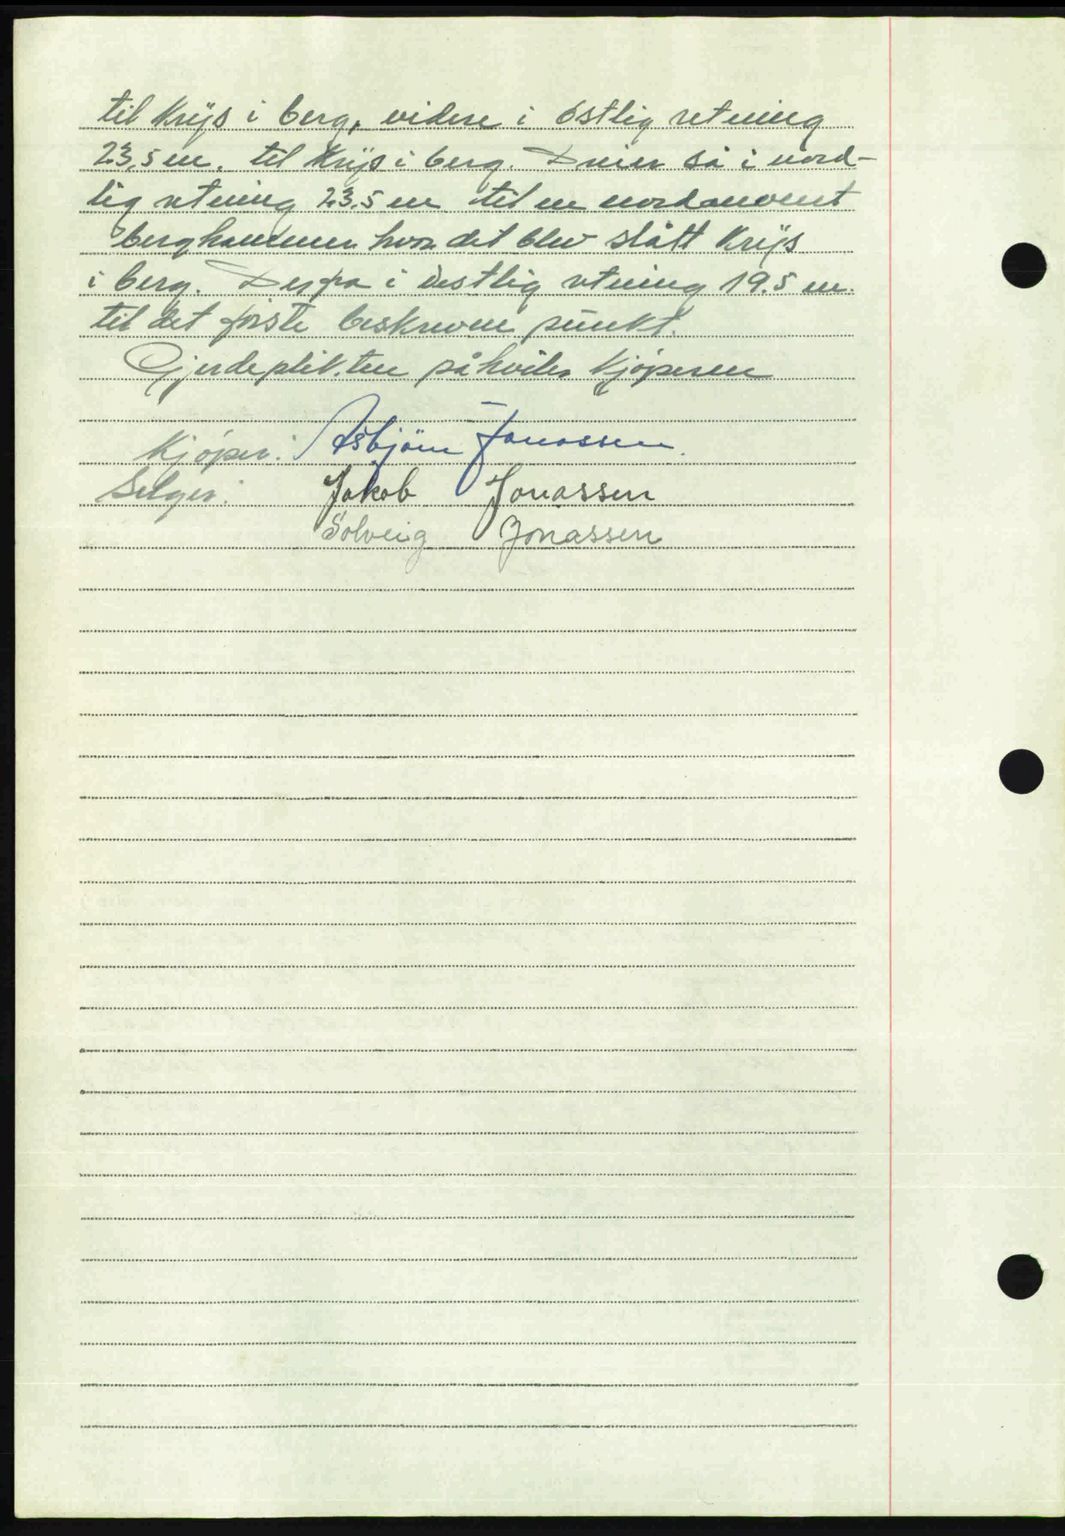 til krÿs i berg, videre i östlig retning
23,5 m. til krÿs i berg. Dreier så i nord-
lig retning 23.5 m til en nordenvent
berghammer hvor det blev slått krÿs
i berg. Derfra i vestlig retning 19.5 m.
til det förste beskrevne punkt.
Gjerdeplikten påhviler kjöperen
Kjöper: Asbjörn Jonassen.
Selger: Jakob Jonassen
Solveig Jonassen